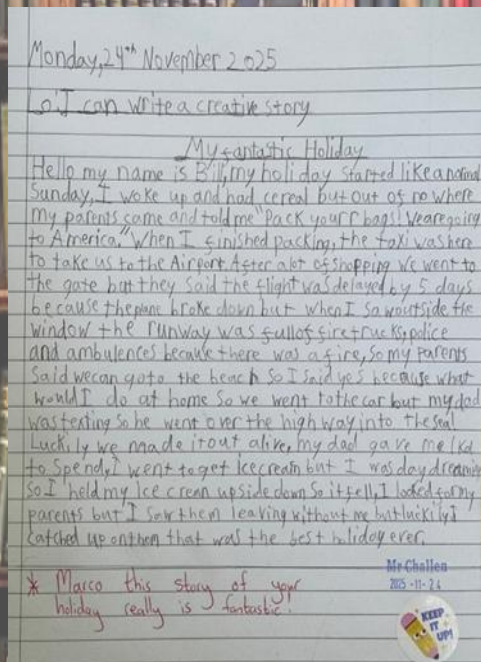 Monday, 24th November 2025
Lo: I can write a creative story
My fantastic Holiday
Hello my name is Bill, my holiday started like a normal
Sunday, I woke up and had cereal but out of no where
my parents came and told me "Pack your bags! We are going
to America." When I finished packing, the taxi was here
to take us to the Airport. After a lot of shopping We went to
the gate but they said the flight was delayed by 5 days
because the plane broke down but when I saw outside the
window the runway was full of firetrucks, police
and ambulences because there was a fire, So my parents
said we can go to the beach so I said yes because what
would I do at home so we went to the car but my dad
was texting so he went over the high way into the sea!
Luckily we made it out alive, my dad gave me 1kd
to spend, I went to get ice cream but I was day dreaming
so I held my ice cream upside down so it fell, I looked for my
parents but I saw them leaving without me but luckily I
catched up on them that was the best holiday ever.
Mr Challen
2025-11-24
* Marco this story of your
holiday really is fantastic!
KEEP
IT
UP!